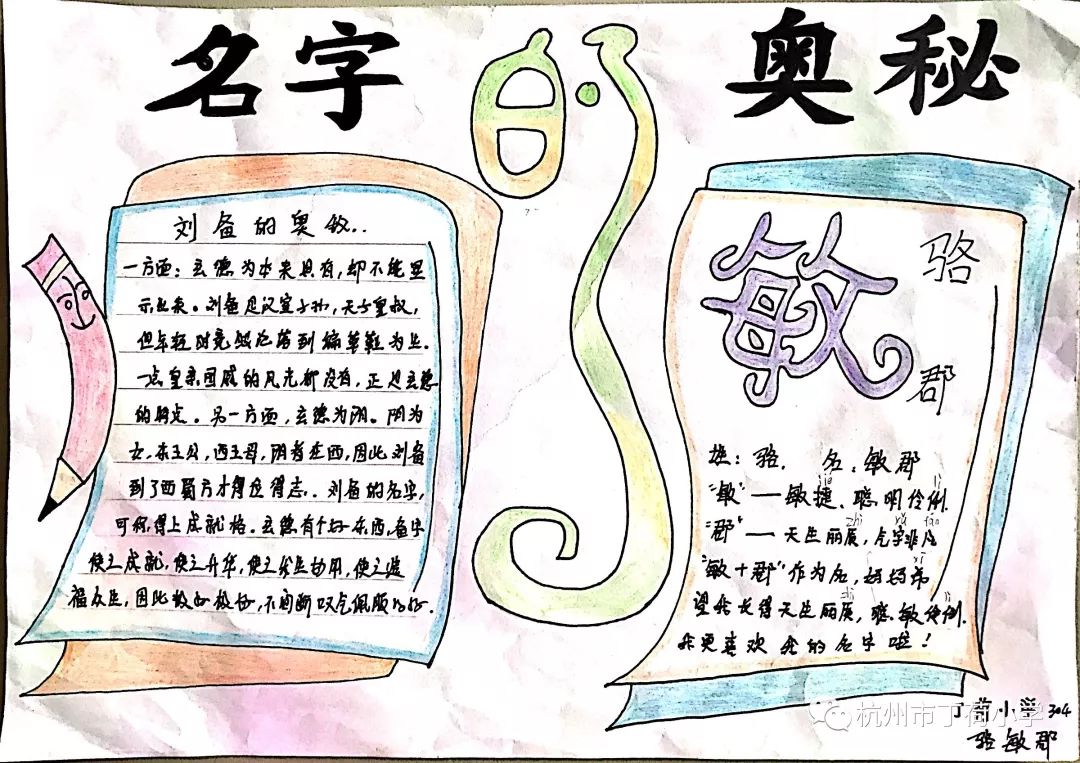 名字的奥秘
刘备的奥敏..
一方面：玄德为本来具有，却不能显
示出来。刘备是汉室子孙，天子皇叔，
但年轻时竟然沦落到编草鞋为生.
一点皇亲国戚的风光都没有，正是玄德
的特点。另一方面，玄德为阴。阴为
女，东王公，西王母，阴者在西，因此刘备
到了西蜀方才得位得志.刘备的名字，
可称得上成就格。玄德有个好东西，备字
使之成就，使之升华，使之发生妙用，使之造
福众生，因此极好极妙，不间断叹气佩服
敏
骆
郡
姓：骆，名：敏郡
jié lì
"敏"——敏捷、聪明伶俐.
zhì yǔ fán
"郡"——天生丽质，气宇非凡
"敏+郡"作为名，妈妈希
望我长得天生丽质，聪敏伶俐.
我更喜欢我的名字啦！
丁荷小学 304
骆敏郡
杭州市丁荷小学